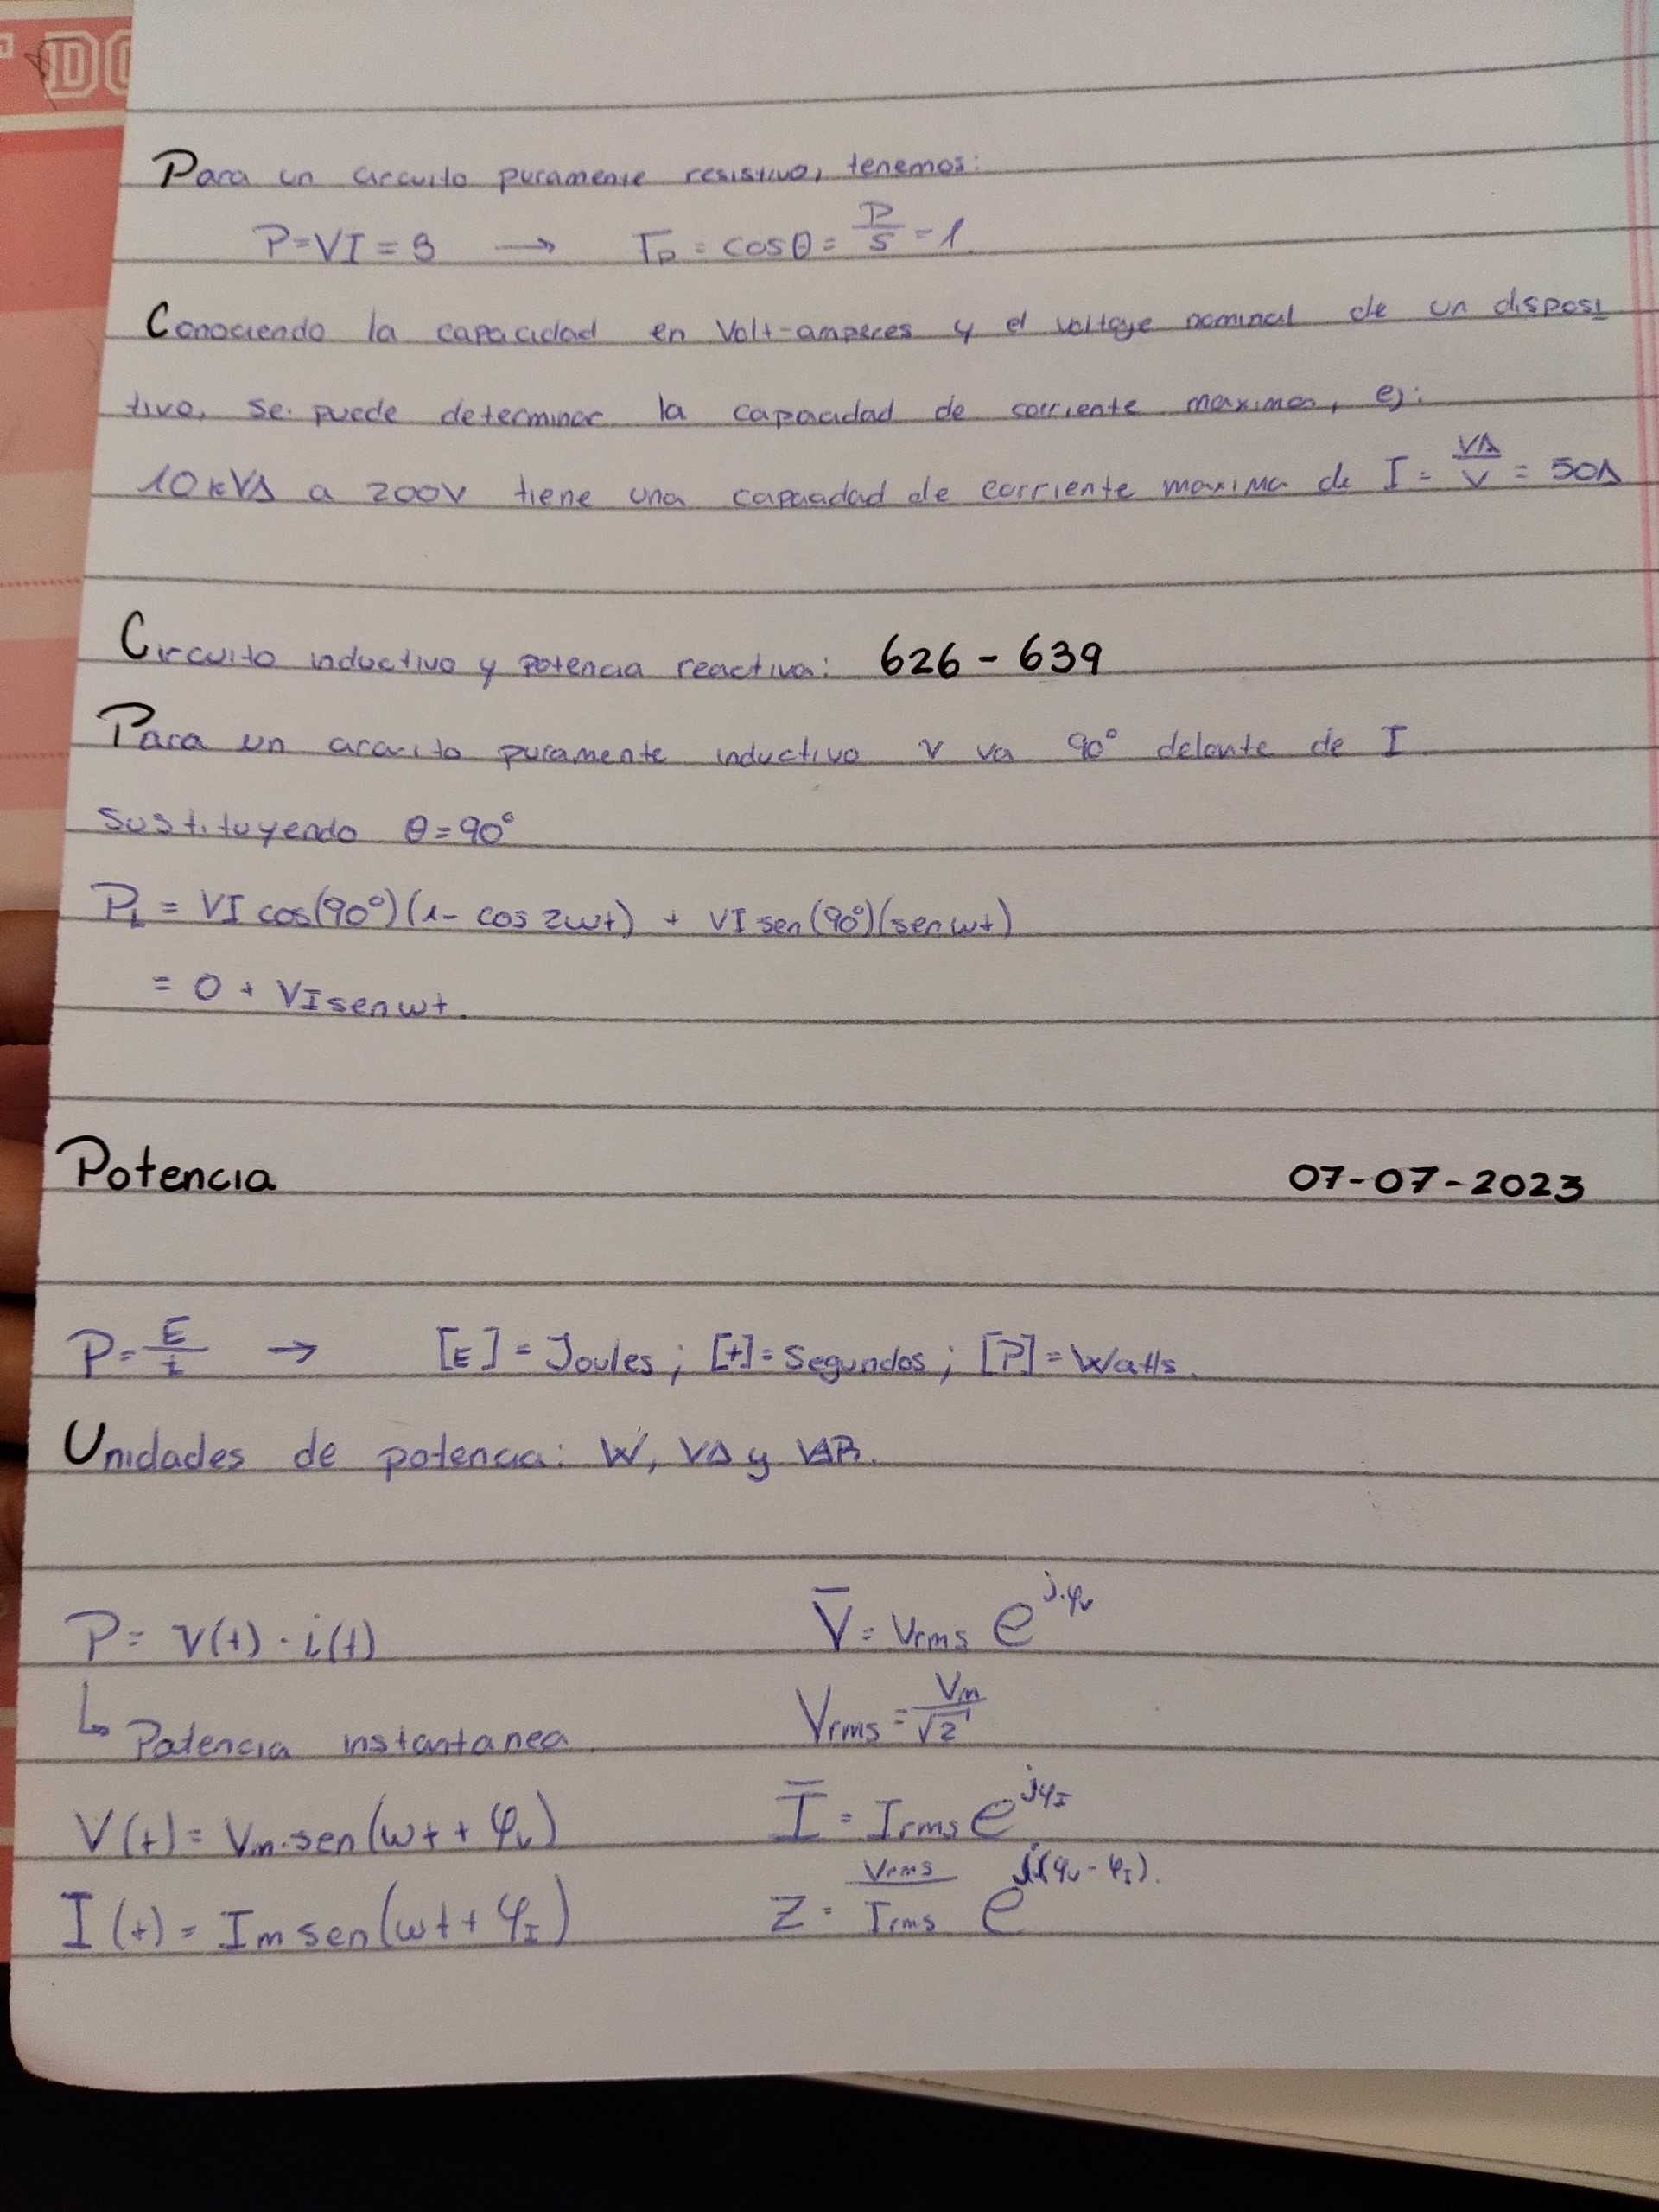 DO
Para un circuito puramente resistivo, tenemos:
P=VI=S → Fp = cosθ = P/S = 1
Conociendo la capacidad en Volt-amperes y el voltaje nominal de un disposi
tivo, se puede determinar la capacidad de corriente maxima, ej:
10kVA a 200V tiene una capacidad de corriente maxima de I = VA/V = 50A
Circuito inductivo y potencia reactiva: 626 - 639
Para un circuito puramente inductivo V va 90° delante de I
Sustituyendo θ=90°
PL = VI cos(90°)(1- cos 2wt) + VI sen(90°)(senwt)
= 0 + VI senwt.
Potencia 07-07-2023
P= E/t → [E] = Joules; [t]= Segundos; [P]= Watts.
Unidades de potencia: W, VA y VAR.
P= V(t) · i(t) V̄ = Vrms e^jφv
↳ Potencia instantanea. Vrms = Vm/√2
V(t) = Vm·sen(wt + φv) Ī = Irms e^jφI
I(t) = Im sen(wt + φI) Z = Vrms/Irms e^j(φv - φI).